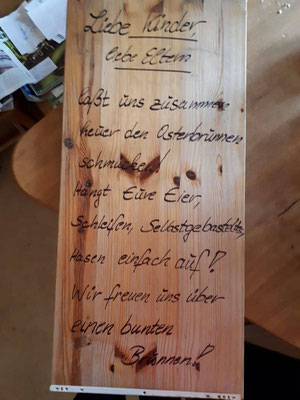 Liebe Kinder,
liebe Eltern
laßt uns zusammen
heuer den Osterbrunnen
schmücken!
Hängt Eure Eier,
Schleifen, Selbstgebasteltes,
Hasen einfach auf!
Wir freuen uns über
einen bunten
Brunnen!